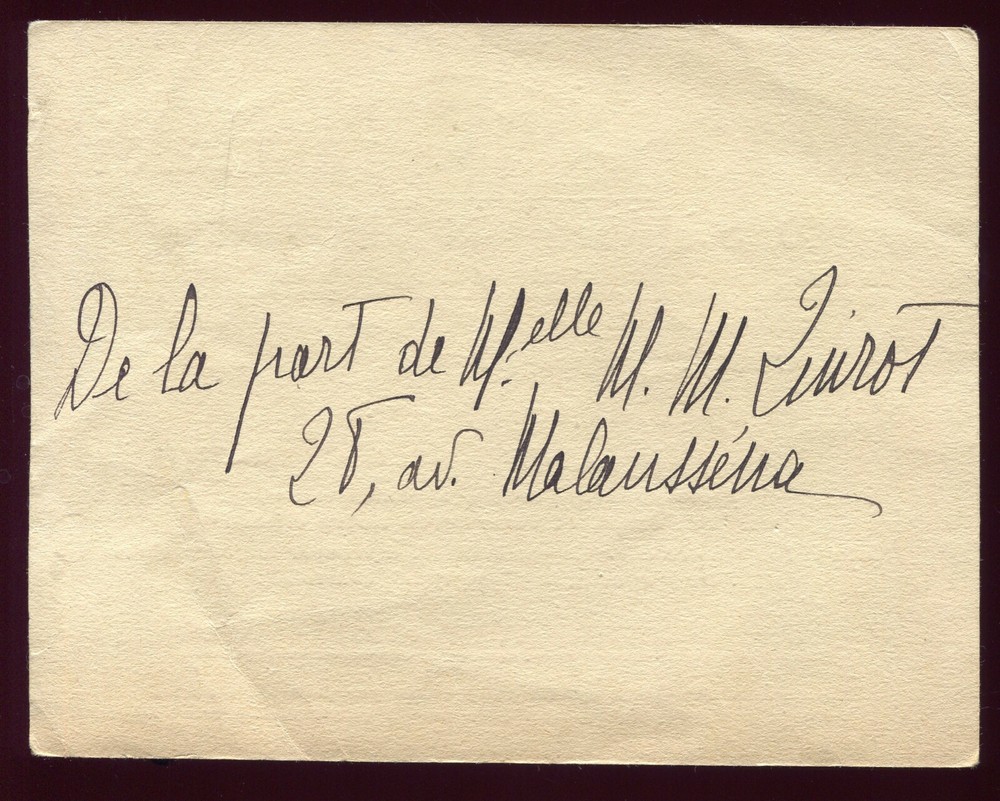 De la part de M.elle M. M. Quirot
28, av. Malausséna